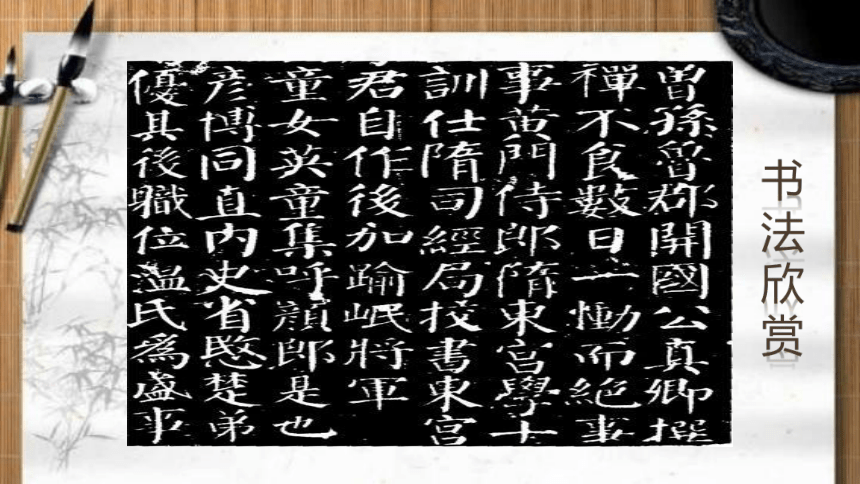 曾孫魯郡開國公真卿撰
禪不食數日一慟而絕事
事黃門侍郎隋東宮學士
訓仕隋司經局挍書東宮
君自作後加踰岷將軍
童女英童集呼顏郎是也
彥博同直內史省愍楚弟
優其後職位溫氏爲盛事
书法欣赏